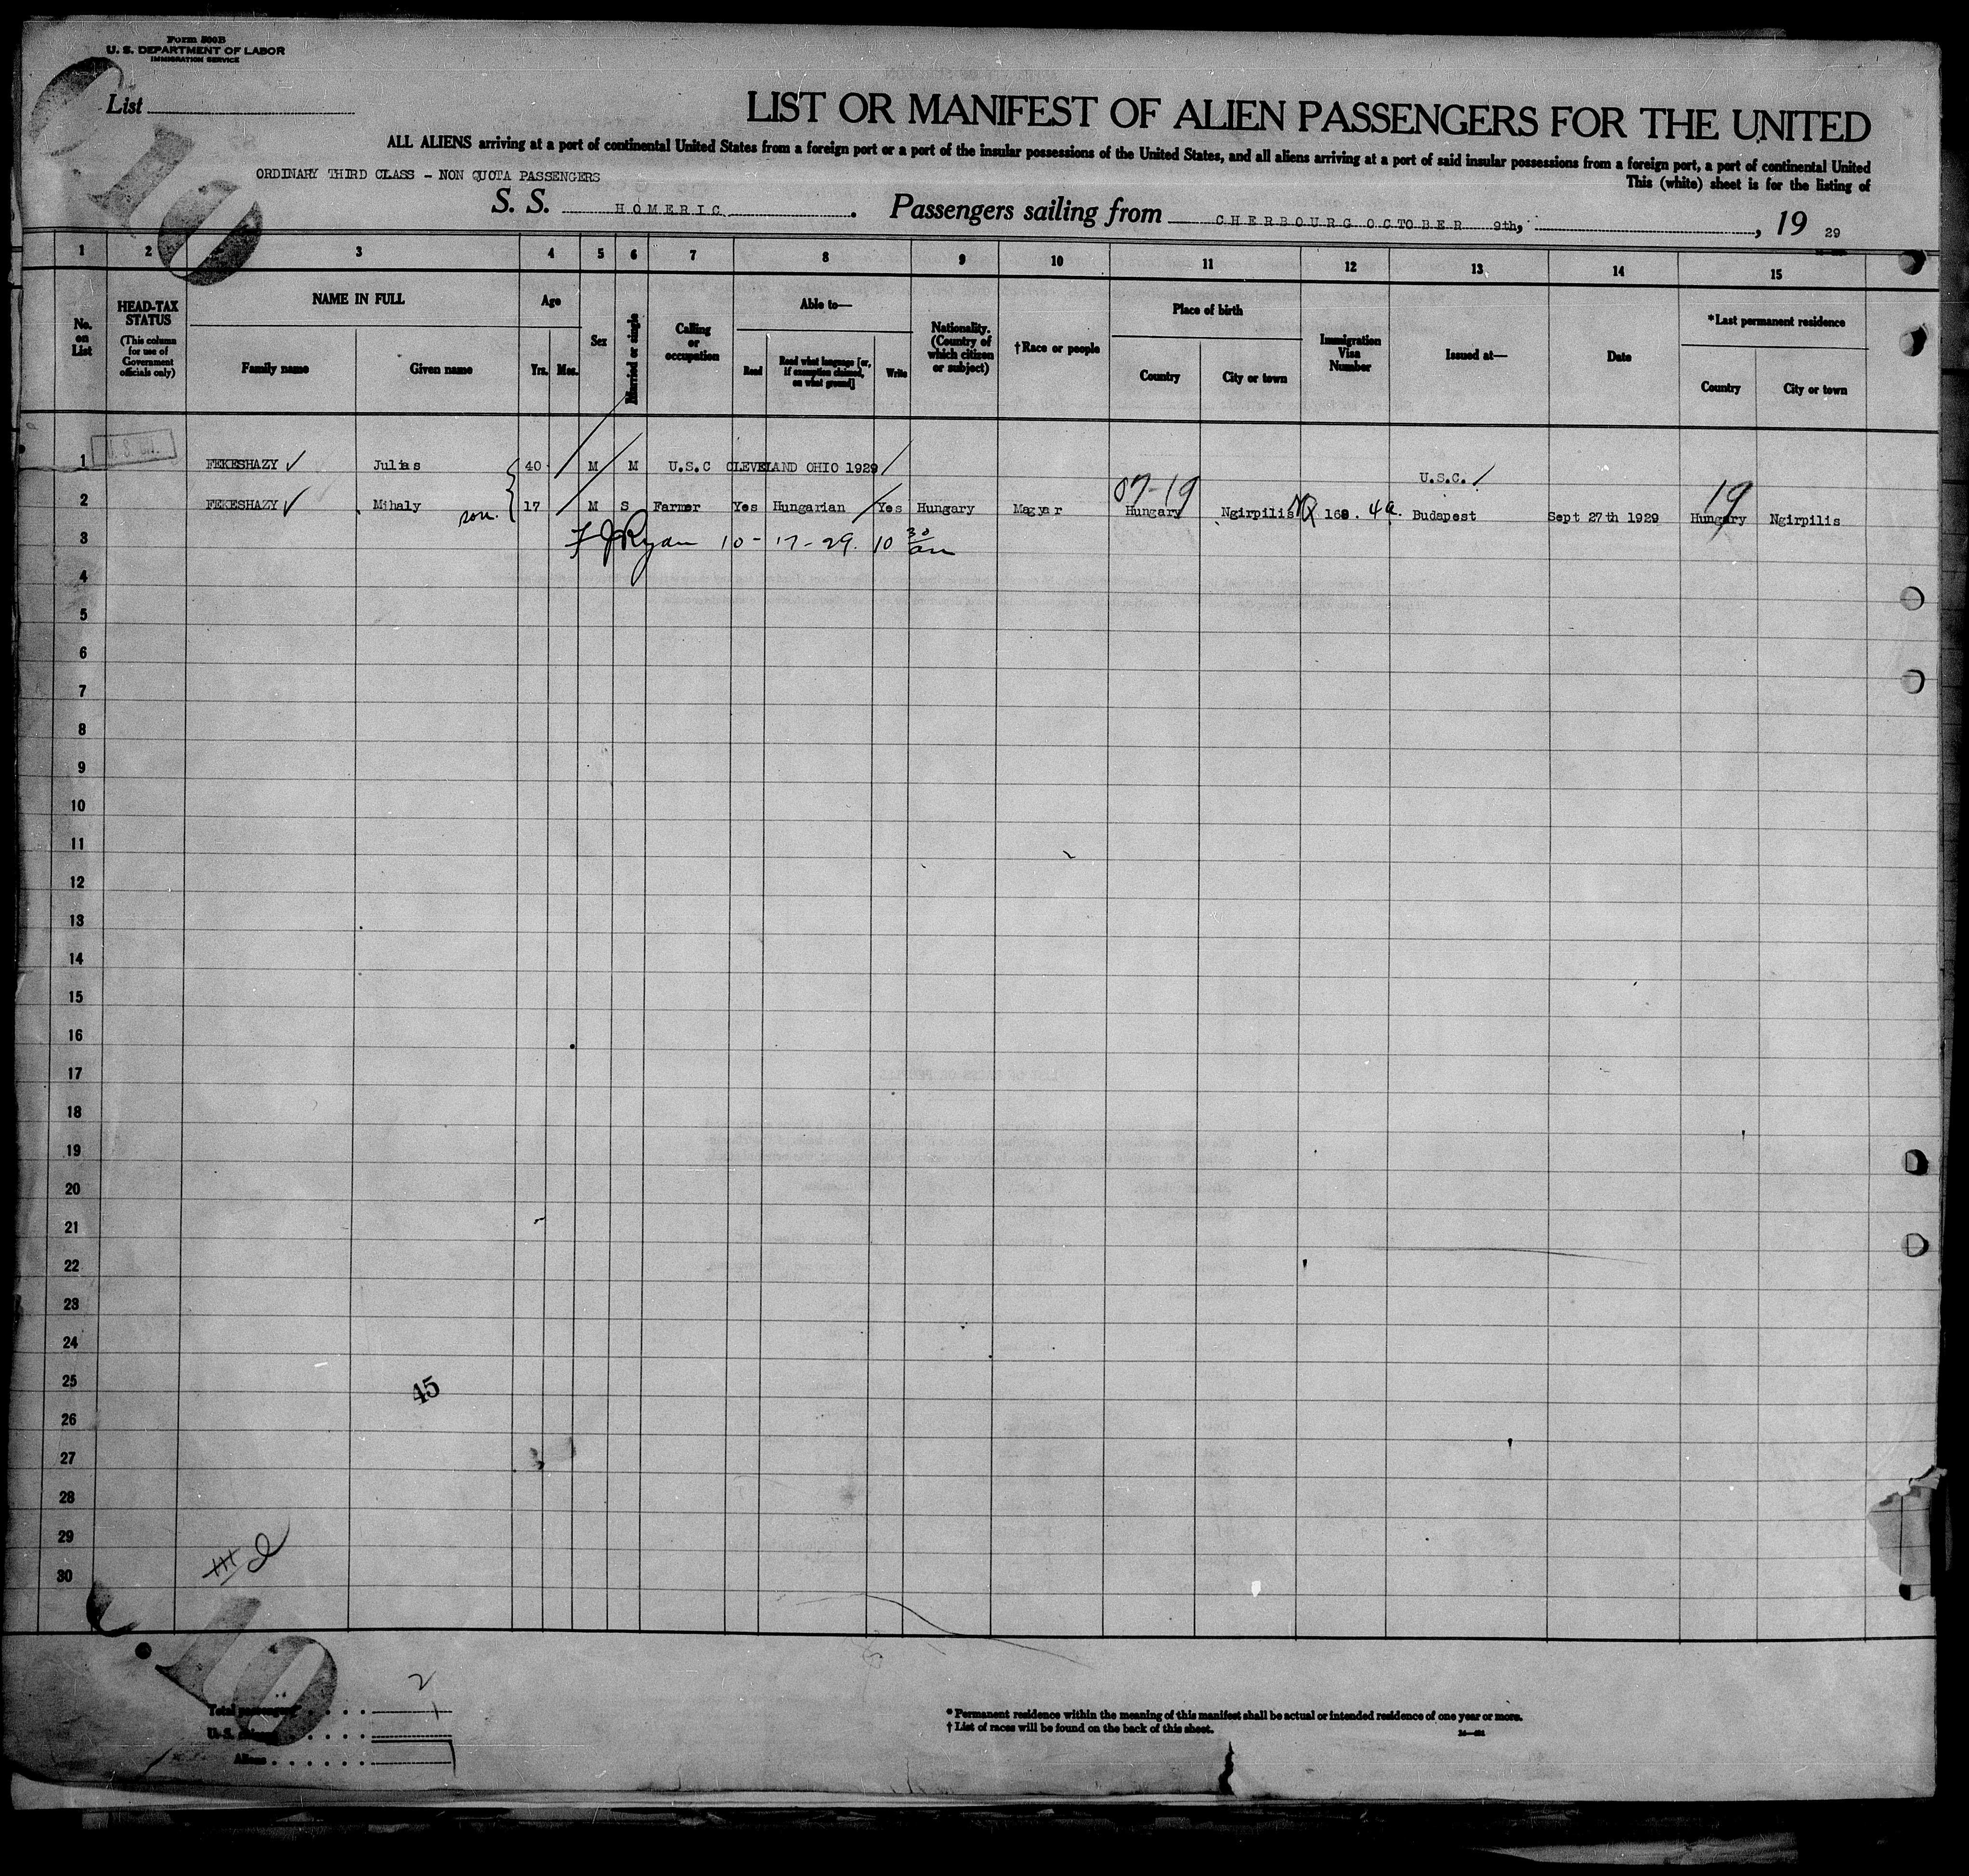 Form 500B
U. S. DEPARTMENT OF LABOR
IMMIGRATION SERVICE
List
10
LIST OR MANIFEST OF ALIEN PASSENGERS FOR THE UNITED
ALL ALIENS arriving at a port of continental United States from a foreign port or a port of the insular possessions of the United States, and all aliens arriving at a port of said insular possessions from a foreign port, a port of continental United
This (white) sheet is for the listing of
ORDINARY THIRD CLASS - NON QUOTA PASSENGERS
S. S. HOMERIC. Passengers sailing from CHERBOURG OCTOBER 9th, , 19 29
1 2 3 4 5 6 7 8 9 10 11 12 13 14 15
No. on List
HEAD-TAX STATUS
(This column for use of Government officials only)
NAME IN FULL
Family name Given name
Age
Yrs. Mos.
Sex
Married or single
Calling or occupation
Able to—
Read Read what language [or, if exemption claimed, on what ground] Write
Nationality. (Country of which citizen or subject)
†Race or people
Place of birth
Country City or town
Immigration Visa Number
Issued at—
Date
*Last permanent residence
Country City or town
1 FEKESHAZY Julias 40 M M U.S.C CLEVELAND OHIO 1929 U.S.C.
07-19 19
2 FEKESHAZY Mihaly son. 17 M S Farmer Yes Hungarian Yes Hungary Magyar Hungary Ngirpilis NQ 168. 4a. Budapest Sept 27th 1929 Hungary Ngirpilis
3 F J Ryan 10-17-29. 10 30 am
4
5
6
7
8
9
10
11
12
13
14
15
16
17
18
19
20
21
22
23
24
25
45
26
27
28
29
30
10
2
Total passengers
1
U. S. citizens
Aliens
1
* Permanent residence within the meaning of this manifest shall be actual or intended residence of one year or more.
† List of races will be found on the back of this sheet.